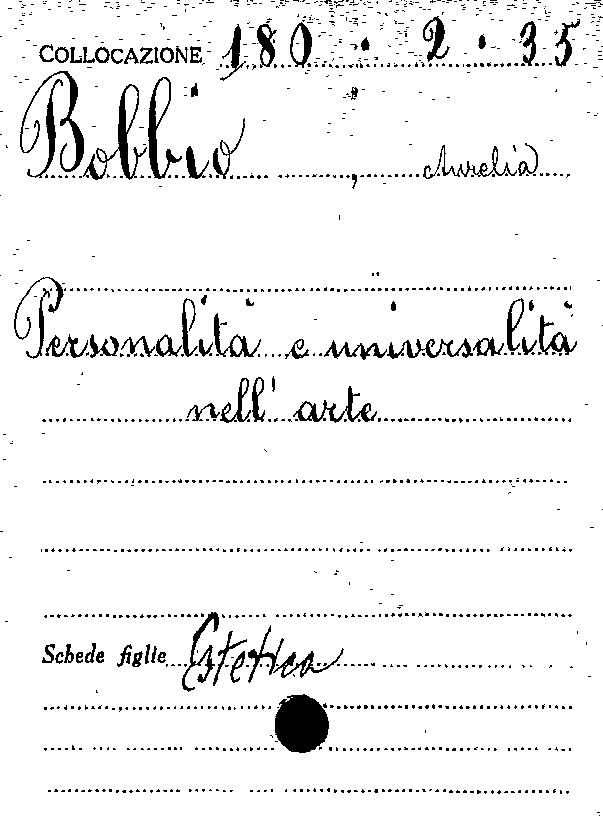 COLLOCAZIONE 180 . 2 . 35
Bobbio , Aurelia
Personalità e universalità
nell' arte
Schede figlie Estetica